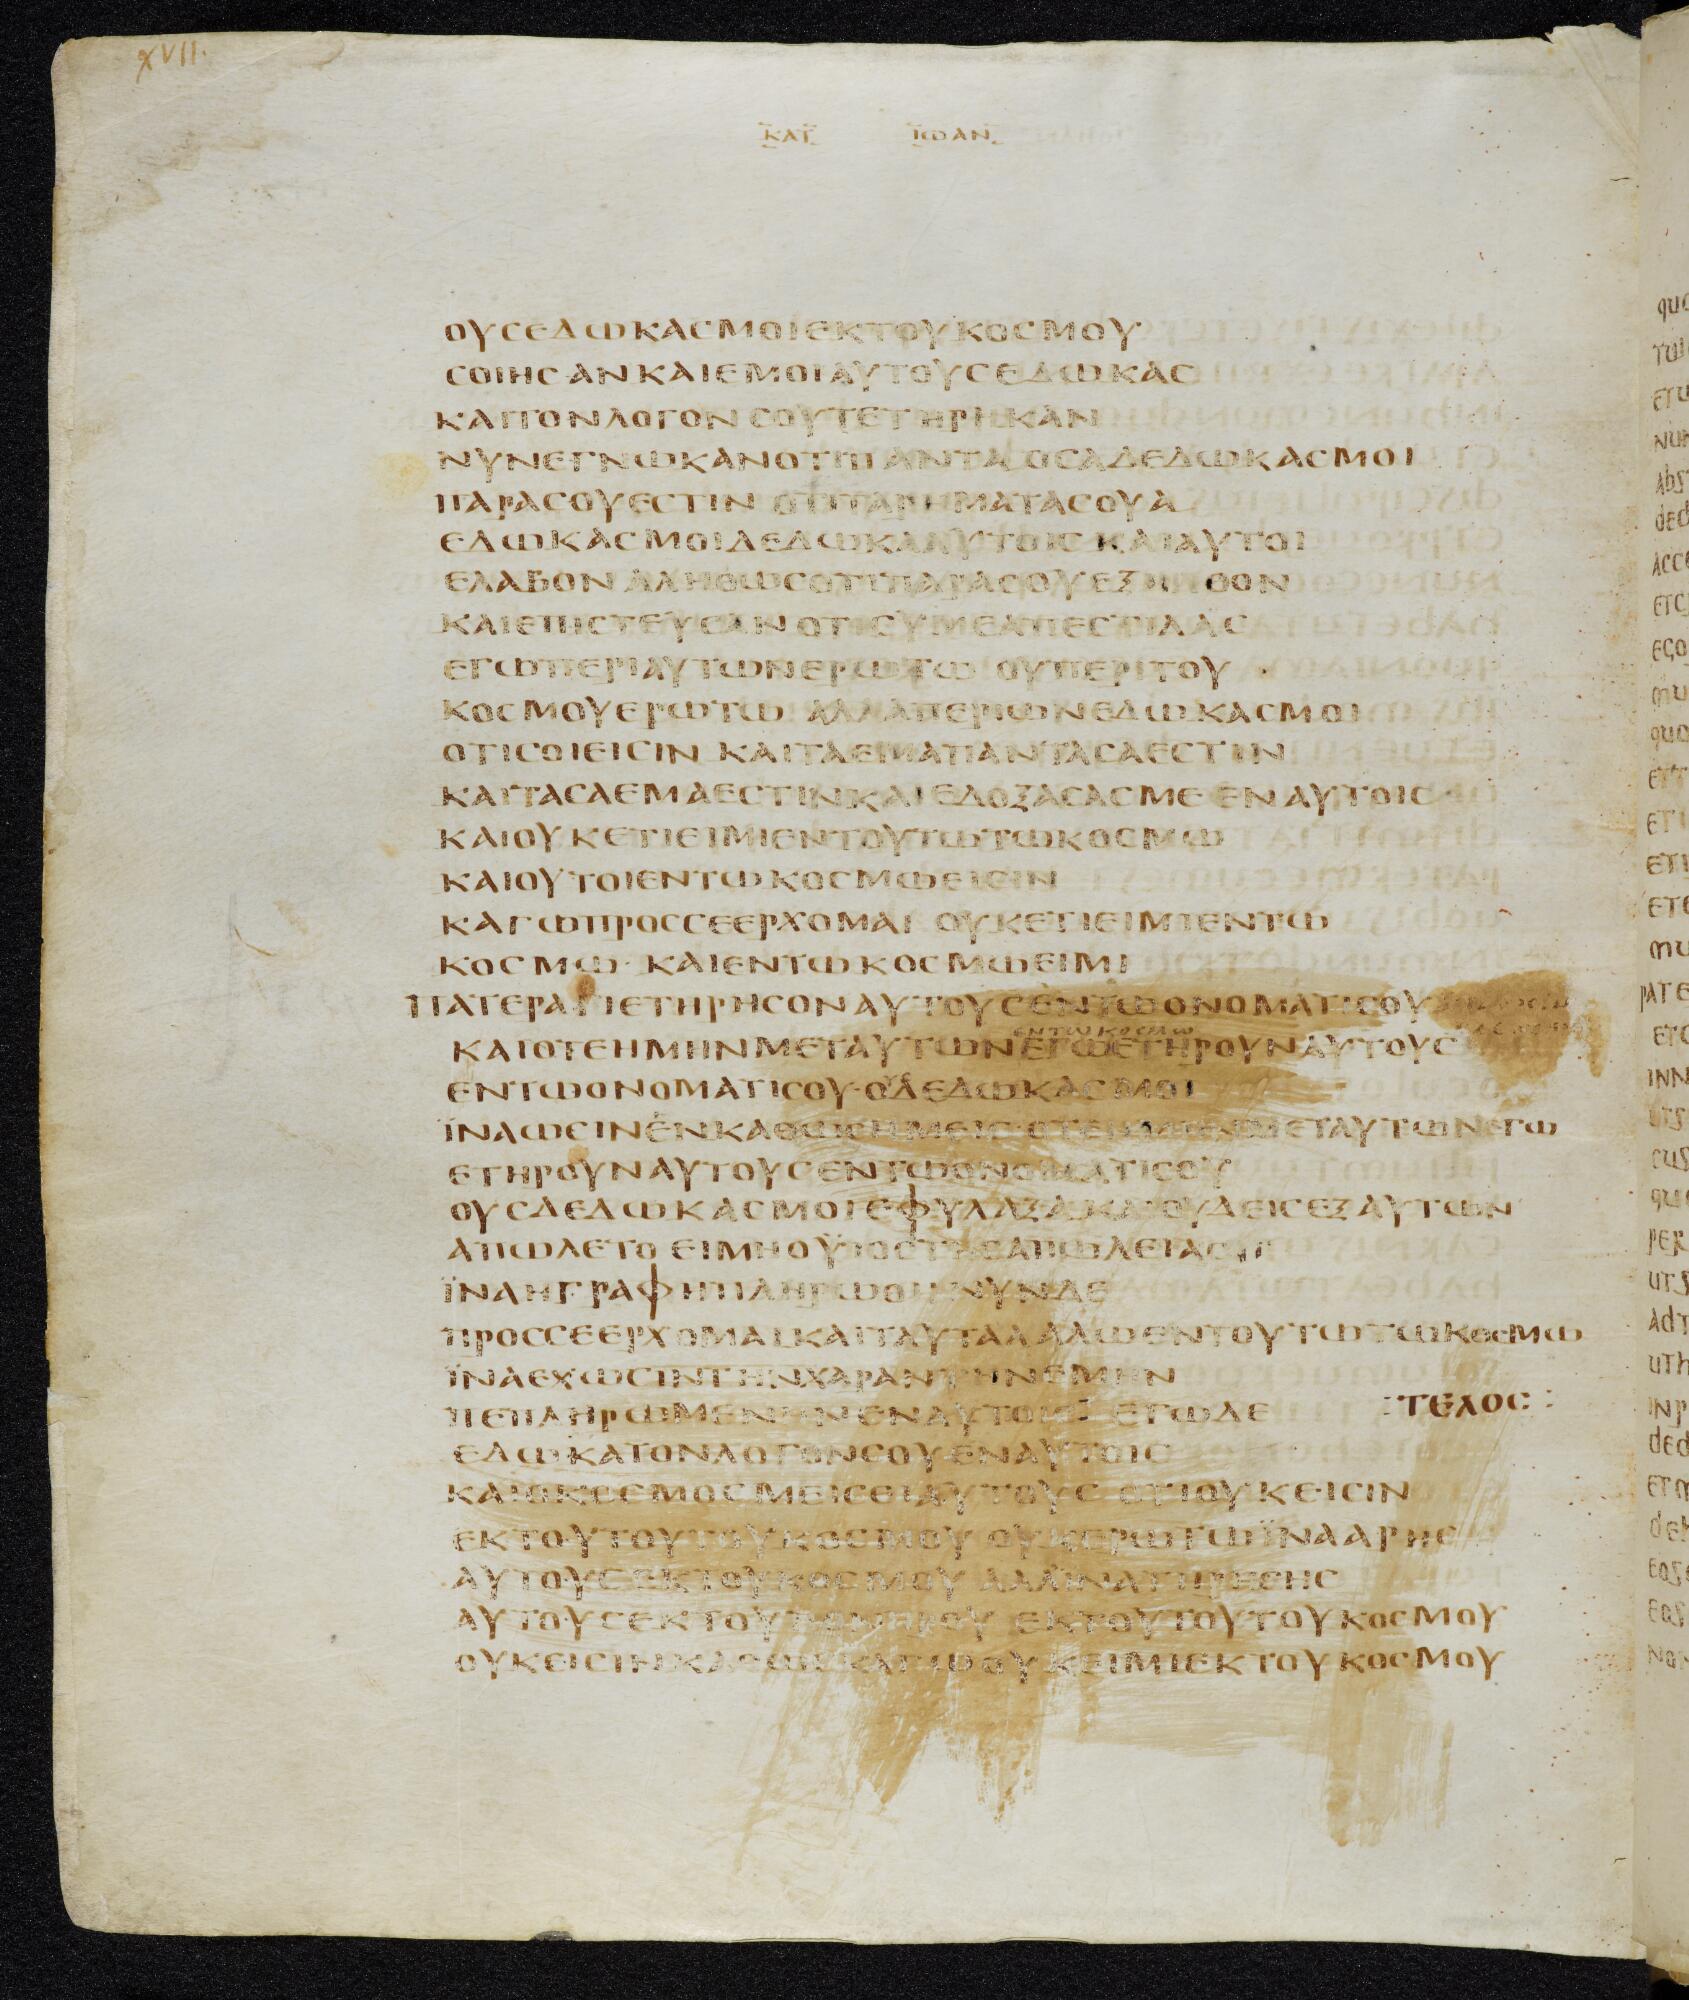 XVII.
ΚΑΤ ΙΩΑΝ
ΟΥΣΕΔΩΚΑΣΜΟΙΕΚΤΟΥΚΟΣΜΟΥ
ΣΟΙΗΣΑΝΚΑΙΕΜΟΙΑΥΤΟΥΣΕΔΩΚΑΣ
ΚΑΙΤΟΝΛΟΓΟΝΣΟΥΤΕΤΗΡΗΚΑΝ
ΝΥΝΕΓΝΩΚΑΝΟΤΙΠΑΝΤΑΟΣΑΔΕΔΩΚΑΣΜΟΙ
ΠΑΡΑΣΟΥΕΣΤΙΝ ΟΤΙΤΑΡΗΜΑΤΑΣΟΥΑ
ΕΔΩΚΑΣΜΟΙΔΕΔΩΚΑΑΥΤΟΙΣ ΚΑΙΑΥΤΟΙ
ΕΛΑΒΟΝ ΑΛΗΘΩΣΟΤΙΠΑΡΑΣΟΥΕΞΗΛΘΟΝ
ΚΑΙΕΠΙΣΤΕΥΣΑΝΟΤΙΣΥΜΕΑΠΕΣΤΙΛΑΣ
ΕΓΩΠΕΡΙΑΥΤΩΝΕΡΩΤΩ ΟΥΠΕΡΙΤΟΥ
ΚΟΣΜΟΥΕΡΩΤΩ ΑΛΛΑΠΕΡΙΩΝΕΔΩΚΑΣΜΟΙ
ΟΤΙΣΟΙΕΙΣΙΝ ΚΑΙΤΑΕΜΑΠΑΝΤΑΣΑΕΣΤΙΝ
ΚΑΙΤΑΣΑΕΜΑΕΣΤΙΝΚΑΙΕΔΟΞΑΣΑΣΜΕ ΕΝΑΥΤΟΙΣ
ΚΑΙΟΥΚΕΤΙΕΙΜΙΕΝΤΟΥΤΩΤΩΚΟΣΜΩ
ΚΑΙΟΥΤΟΙΕΝΤΩΚΟΣΜΩΕΙΣΙΝ
ΚΑΓΩΠΡΟΣΣΕΕΡΧΟΜΑΙ ΟΥΚΕΤΙΕΙΜΙΕΝΤΩ
ΚΟΣΜΩ· ΚΑΙΕΝΤΩΚΟΣΜΩΕΙΜΙ
ΠΑΤΕΡΑΓΙΕΤΗΡΗΣΟΝΑΥΤΟΥΣΕΝΤΩΟΝΟΜΑΤΙΣΟΥ
ΕΝΤΩΚΟΣΜΩ
ΚΑΙΟΤΕΗΜΗΝΜΕΤΑΥΤΩΝΕΓΩΕΤΗΡΟΥΝΑΥΤΟΥΣ
ΕΝΤΩΟΝΟΜΑΤΙΣΟΥ·ΟΔΕΔΩΚΑΣΜΟΙ
ΪΝΑΩΣΙΝΕΝΚΑΘΩΣΗΜΕΙΣ·ΟΤΕΗΜΗΝΜΕΤΑΥΤΩΝΕΓΩ
ΕΤΗΡΟΥΝΑΥΤΟΥΣΕΝΤΩΟΝΟΜΑΤΙΣΟΥ
ΟΥΣΔΕΔΩΚΑΣΜΟΙΕΦΥΛΑΞΑΚΑΙΟΥΔΕΙΣΕΞΑΥΤΩΝ
ΑΠΩΛΕΤΟ ΕΙΜΗΟΥΪΟΣΤΗΣΑΠΩΛΕΙΑΣ
ΪΝΑΗΓΡΑΦΗΠΛΗΡΩΘΗ ΝΥΝΔΕ
ΠΡΟΣΣΕΕΡΧΟΜΑΙΚΑΙΤΑΥΤΑΛΑΛΩΕΝΤΟΥΤΩΤΩΚΟΣΜΩ
ΪΝΑΕΧΩΣΙΝΤΗΝΧΑΡΑΝΤΗΝΕΜΗΝ
ΠΕΠΛΗΡΩΜΕΝΗΝΕΝΑΥΤΟΙΣ ΕΓΩΔΕ :ΤΕΛΟΣ:
ΕΔΩΚΑΤΟΝΛΟΓΟΝΣΟΥΕΝΑΥΤΟΙΣ
ΚΑΙΟΚΟΣΜΟΣΜΕΙΣΕΙΑΥΤΟΥΣ ΟΤΙΟΥΚΕΙΣΙΝ
ΕΚΤΟΥΤΟΥΤΟΥΚΟΣΜΟΥ ΟΥΚΕΡΩΤΩΪΝΑΑΡΗΣ
ΑΥΤΟΥΣΕΚΤΟΥΚΟΣΜΟΥ ΑΛΛΪΝΑΤΗΡΗΣΗΣ
ΑΥΤΟΥΣΕΚΤΟΥΠΟΝΗΡΟΥ ΕΚΤΟΥΤΟΥΤΟΥΚΟΣΜΟΥ
ΟΥΚΕΙΣΙΝΚΑΘΩΣΚΑΓΩΟΥΚΕΙΜΙΕΚΤΟΥΚΟΣΜΟΥ